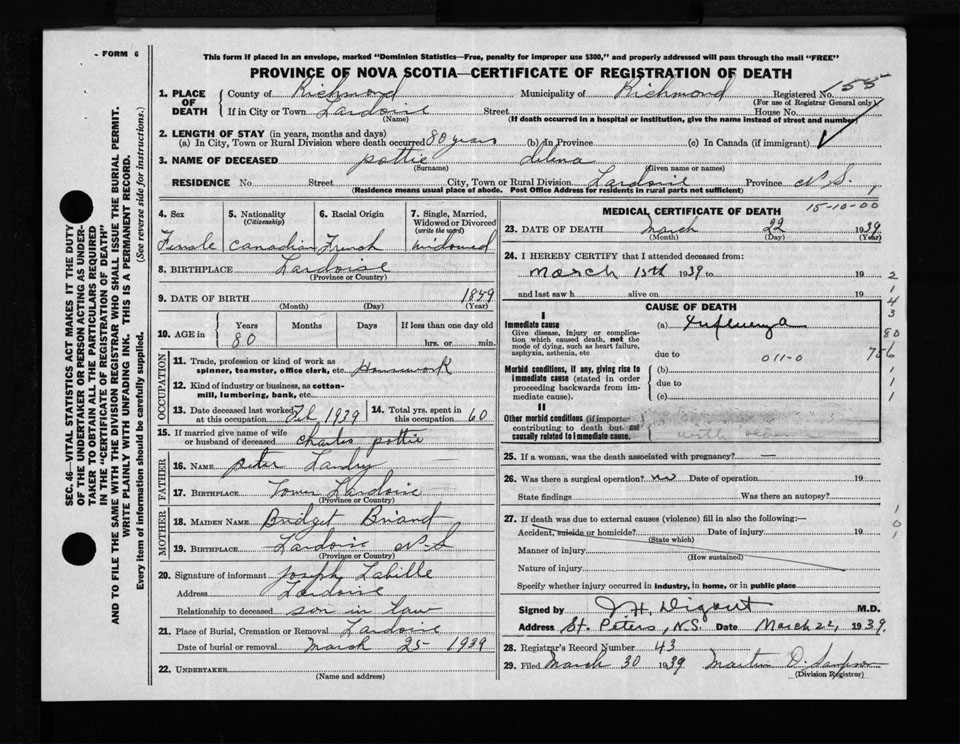 - FORM 6
This form if placed in an envelope, marked "Dominion Statistics—Free, penalty for improper use $300," and properly addressed will pass through the mail "FREE"
PROVINCE OF NOVA SCOTIA—CERTIFICATE OF REGISTRATION OF DEATH
1. PLACE OF DEATH County of Richmond Municipality of Richmond Registered No. 55
(For use of Registrar General only)
If in City or Town Lardoise Street House No.
(Name) (If death occurred in a hospital or institution, give the name instead of street and number)
2. LENGTH OF STAY (in years, months and days)
(a) In City, Town or Rural Division where death occurred 80 years (b) In Province (c) In Canada (if immigrant)
3. NAME OF DECEASED pottie
(Surname) (Given name or names)
RESIDENCE No Street City, Town or Rural Division Lardoise Province N.S.
(Residence means usual place of abode. Post Office Address for residents in rural parts not sufficient)
4. Sex 5. Nationality (Citizenship) 6. Racial Origin 7. Single, Married, Widowed or Divorced (write the word)
Female Canadian French widowed
8. BIRTHPLACE Lardoise
(Province or Country)
9. DATE OF BIRTH 1859
(Month) (Day) (Year)
10. AGE in Years Months Days If less than one day old
80 hrs. or min.
OCCUPATION
11. Trade, profession or kind of work as spinner, teamster, office clerk, etc. Housework
12. Kind of industry or business, as cotton-mill, lumbering, bank, etc.
13. Date deceased last worked at this occupation Feb 1939 14. Total yrs. spent in this occupation 60
15. If married give name of wife or husband of deceased Charles pottie
FATHER
16. NAME Peter Landry
17. BIRTHPLACE Lardoise
(Province or Country)
MOTHER
18. MAIDEN NAME Bridget Briand
19. BIRTHPLACE Lardoise N.S
(Province or Country)
20. Signature of informant Joseph Labille
Address Lardoise
Relationship to deceased son in law
21. Place of Burial, Cremation or Removal Lardoise
Date of burial or removal March 25 1939
22. UNDERTAKER
(Name and address)
MEDICAL CERTIFICATE OF DEATH 15-10-00
23. DATE OF DEATH March 22 1939
(Month) (Day) (Year)
24. I HEREBY CERTIFY that I attended deceased from:
March 15th 1939 to 19
and last saw h alive on 19
CAUSE OF DEATH
I
Immediate cause (a) Influenza
Give disease, injury or complication which caused death, not the mode of dying, such as heart failure, asphyxia, asthenia, etc
due to 011-0
Morbid conditions, if any, giving rise to immediate cause (stated in order proceeding backwards from immediate cause).
(b)
due to
(c)
II
Other morbid conditions (if important) contributing to death but not causally related to immediate cause.
2
1
4
3
80
756
1
1
1
25. If a woman, was the death associated with pregnancy? —
26. Was there a surgical operation? no Date of operation 19
State findings Was there an autopsy?
27. If death was due to external causes (violence) fill in also the following:—
Accident, suicide or homicide? Date of injury 19
(State which)
Manner of injury
(How sustained)
Nature of injury
Specify whether injury occurred in industry, in home, or in public place
1
0
1
Signed by M.D.
Address St. Peters, N.S. Date March 22, 1939.
28. Registrar's Record Number 43
29. Filed March 30 1939 Martin D. Sampson
(Division Registrar)
SEC. 46—VITAL STATISTICS ACT MAKES IT THE DUTY
OF THE UNDERTAKER OR PERSON ACTING AS UNDER-
TAKER TO OBTAIN ALL THE PARTICULARS REQUIRED
IN THE "CERTIFICATE OF REGISTRATION OF DEATH"
AND TO FILE THE SAME WITH THE DIVISION REGISTRAR WHO SHALL ISSUE THE BURIAL PERMIT.
WRITE PLAINLY WITH UNFADING INK. THIS IS A PERMANENT RECORD.
Every item of information should be carefully supplied. (See reverse side for instructions.)